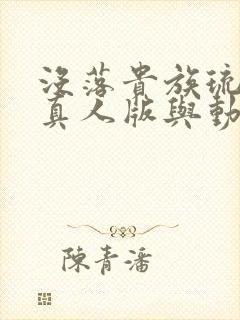 沒落貴族琉
真人版與動
陳青潘